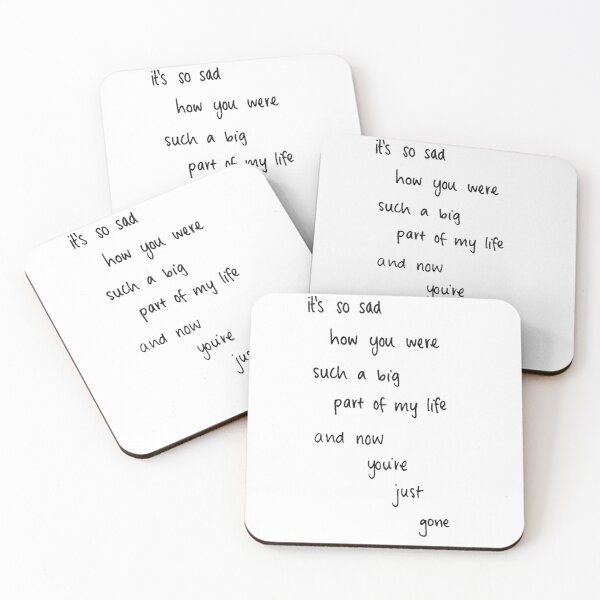 it's so sad
how you were
such a big
part of my life
it's so sad
how you were
such a big
part of my life
and now
you're
it's so sad
how you were
such a big
part of my life
and now
you're
it's so sad
how you were
such a big
part of my life
and now
you're
just
gone